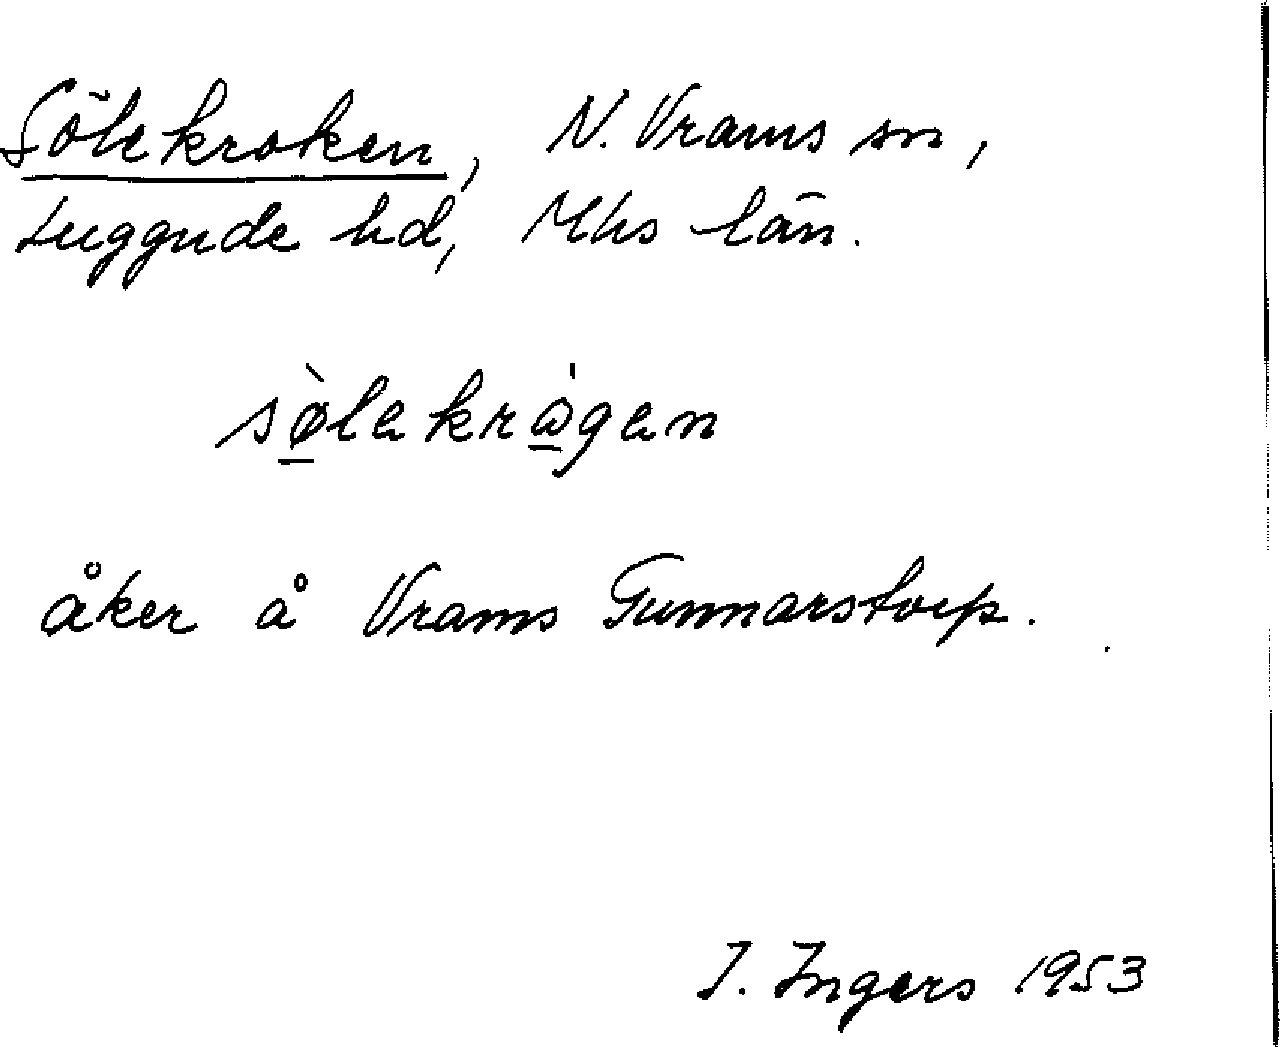 Sölekroken, N. Vrams sn,
Luggude hd, Mhs län.
sø̱̀lekrώ̱gen
åker å Vrams Gunnarstorp.
I. Ingers 1953